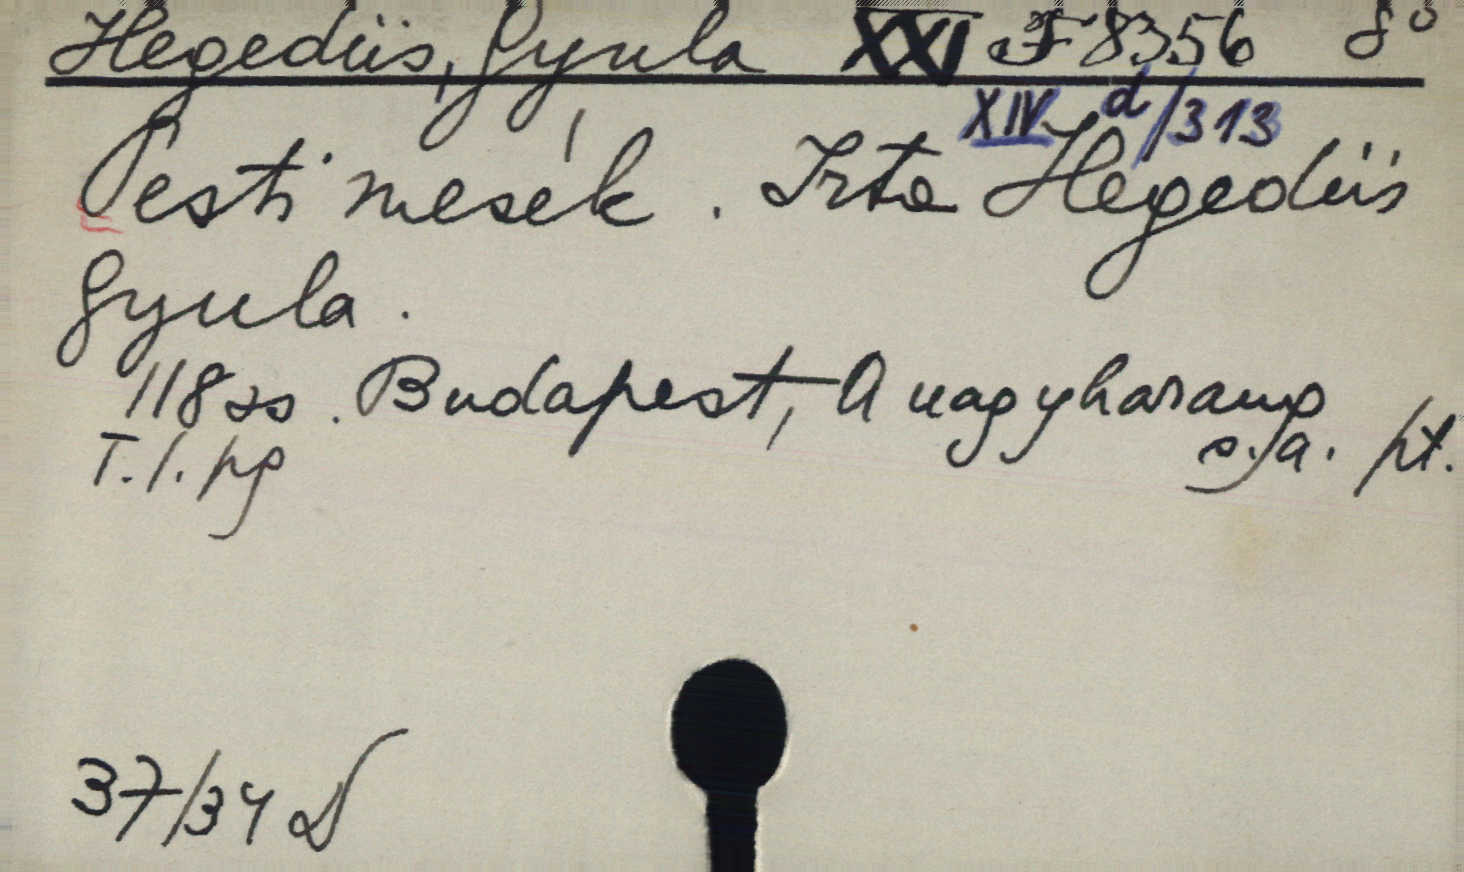 Hegedüs, Gyula XXI F 8356 8°
XIV d/313
Pesti mesék. Irta Hegedüs
Gyula.
118 ss. Budapest, A nagyharang
s.a. pt.
T. l. pg
37/34